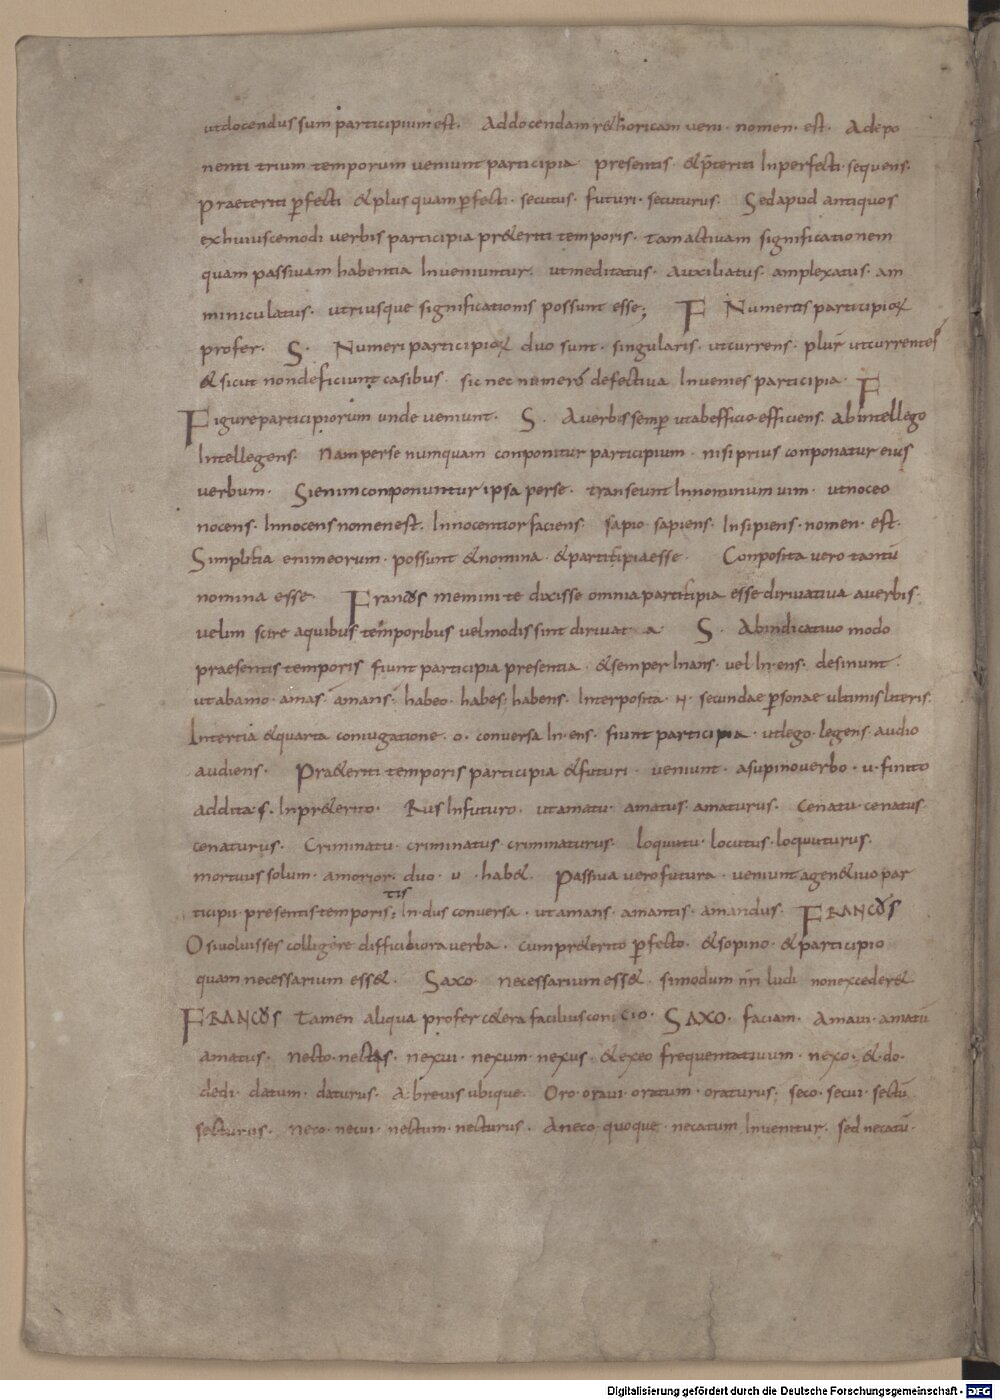 utdocendus sum participium est. Addocendam rethoricam veni. nomen. est. Adepo
nenti trium temporum veniunt participia presentis. & p̄teriti Inperfecti. sequens.
praeteriti p̱fecti & plus quam p̱fecti. secutus. futuri. secuturus. Sed apud antiquos
ex huiuscemodi verbis participia pr&eriti temporis. tam activam significationem
quam passivam habentia Inveniuntur. ut meditatus. Auxiliatus. amplexatus. am
miniculatus. utriusque significationis possunt esse; F Numeros participioꝝ
profer. S. Numeri participioꝝ duo sunt. singularis. ut currens. plur̄ ut currentes
& sicut non deficiunt casibus. sic nec numero defectiva Invenies participia. F
Figure participiorum unde veniunt. S. A verbis semp̱ ut ab efficio. efficiens. ab intellego
Intellegens. Nam per se numquam conponitur participium. nisi prius conponatur eius
verbum. Si enim conponuntur ipsa per se. transeunt In nominum vim. ut noceo
nocens. Innocens nomen est. Innocentior faciens. sapio sapiens. Insipiens. nomen. est.
Simplicia enim eorum. possunt & nomina. & participia esse. Conposita vero tantū
nomina esse. Francus memini te dixisse omnia participia esse dirivativa a verbis.
velim scire a quibus temporibus vel modis sint dirivata. S. Ab indicativo modo
praesentis temporis fiunt participia presentia. & semper In ans. vel In. ens. desinunt.
ut ab amo. amas. amans. habeo. habes. habens. Interposita. N. secundae p̱sonae ultimis literis.
In tertia & quarta coniugatione. o. conversa In. ens. fiunt participia. ut lego. legens. audio
audiens. Pra&eriti temporis participia & futuri. veniunt. a supino verbo. u. finito
addita. s. In pr&erito. Rus In futuro. ut amatu. amatus. amaturus. Cenatu. cenatus.
cenaturus. Criminatu. criminatus. criminaturus. loquutu. locutus. loquuturus.
mortuus solum. a morior. duo. u. hab&. Passiva vero futura. veniunt a gen&ivo par
ticipii. presentis temporis; tis In. dus conversa. ut amans. amantis. amandus. FRANCUS
O si voluisses colligere difficiliora verba. cum pr&erito p̱fecto. & sopino. & participio
quam necessarium ess&. Saxo. necessarium ess&. si modum n̄ri ludi non exceder&
FRANCUS Tamen aliqua profer c&era facilius conicio. SAXO. faciam. Amavi. amatū
amatus. Necto. nectis. nexui. nexum. nexus. & ex eo frequentativum. nexo. & do.
dedi. datum. daturus. A. brevis ubique. Oro. oravi. oratum. oraturus. seco. secui. sectū
secturus. Neco. necui. nectum. necturus. A neco quoque. necatum Invenitur. sed necatū.
Digitalisierung gefördert durch die Deutsche Forschungsgemeinschaft - DFG